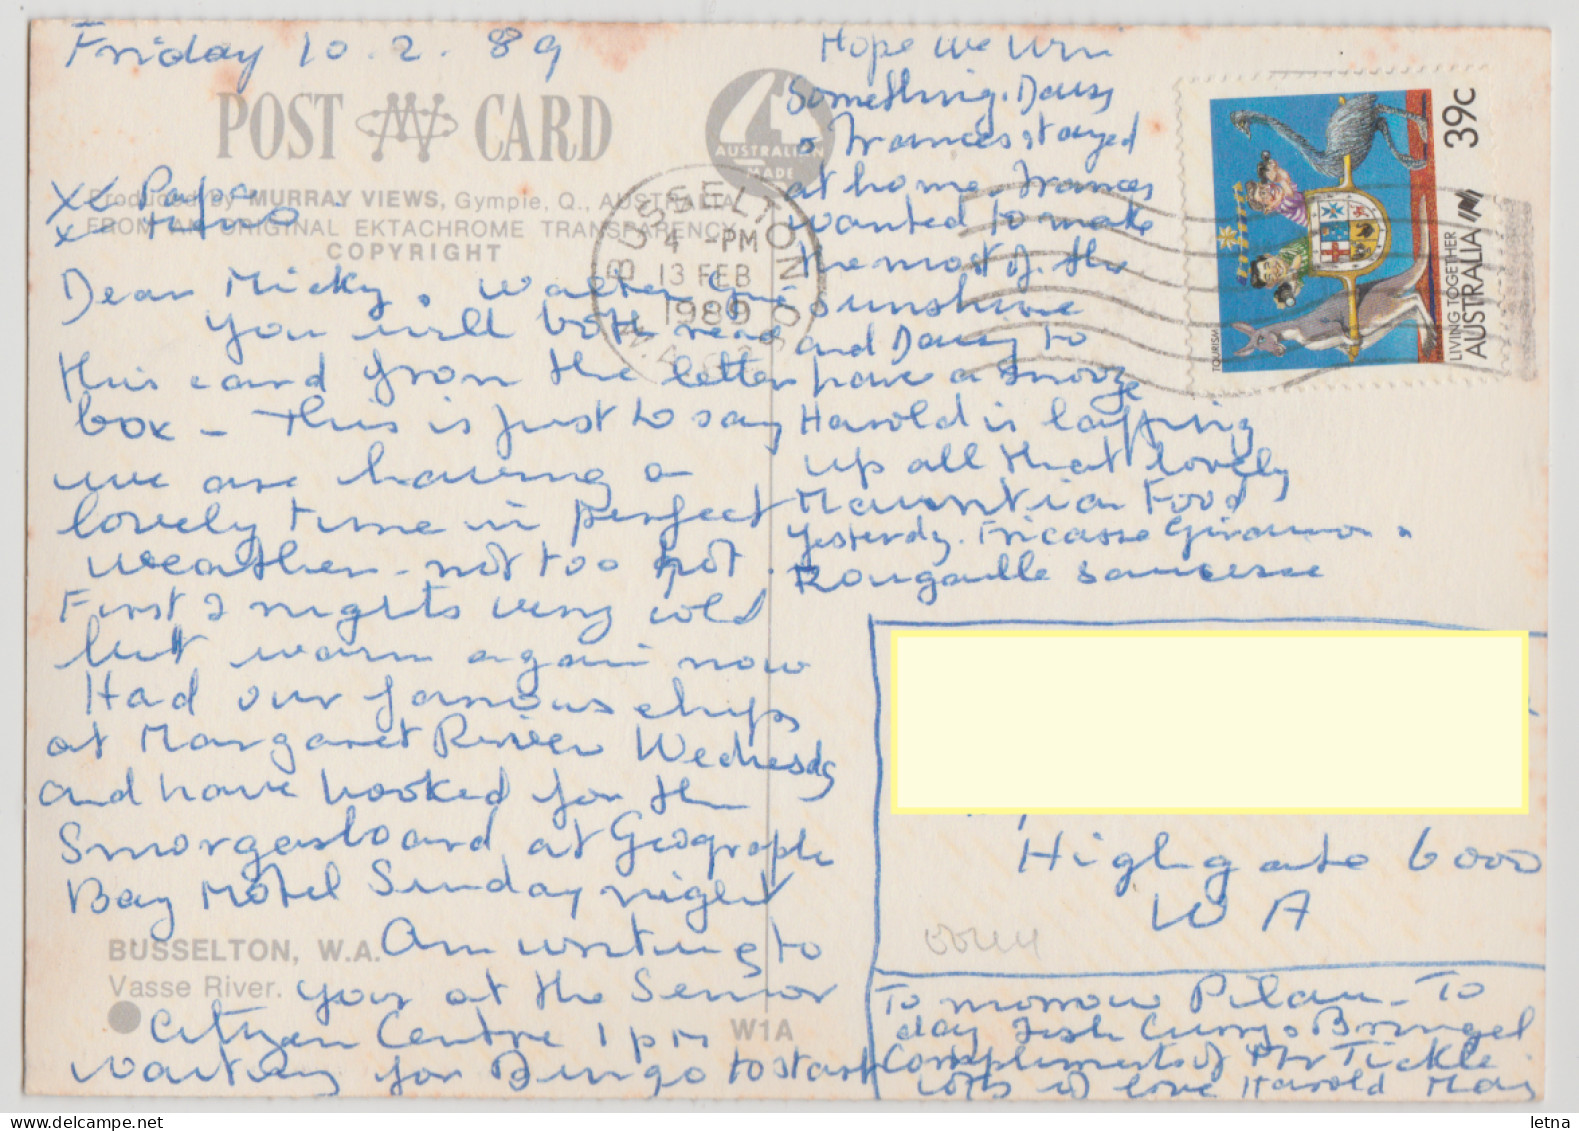 Friday 10.2.89
POST CARD
AUSTRALIAN
MADE
Produced by MURRAY VIEWS, Gympie, Q., AUSTRALIA
FROM AN ORIGINAL EKTACHROME TRANSPARENCY
COPYRIGHT
xx Papa
Dear Micky, Walter
You will both read
this card from the letter
box - This is just to say
we are having a
lovely time in perfect
weather - not too hot.
First 2 nights very cold
but warm again now
Had our famous chips
at Margaret River Wednesday
and have booked for the
Smorgasboard at Geographe
Bay Motel Sunday night
Am writing to
you at the Senior
Citizen Centre 1 pm
waiting for Bingo to start
BUSSELTON, W.A.
Vasse River.
W1A
Hope we win
Something. Daisy
& Frances stayed
at home. Frances
wanted to make
the most of the
sunshine
and Daisy to
have a snooze
Harold is lapping
up all that lovely
Mauritian Food
yesterdy. Fricasse Giraumon &
Rougaille saucisse
BUSSELTON
4 -PM
13 FEB
1989
39c
LIVING TOGETHER
AUSTRALIA
TOURISM
Highgate 6000
WA
To morrow Pilau - To
day Fish Curry & Bringel
Compliments of Mr Tickle
Lots of love Harold May
letna